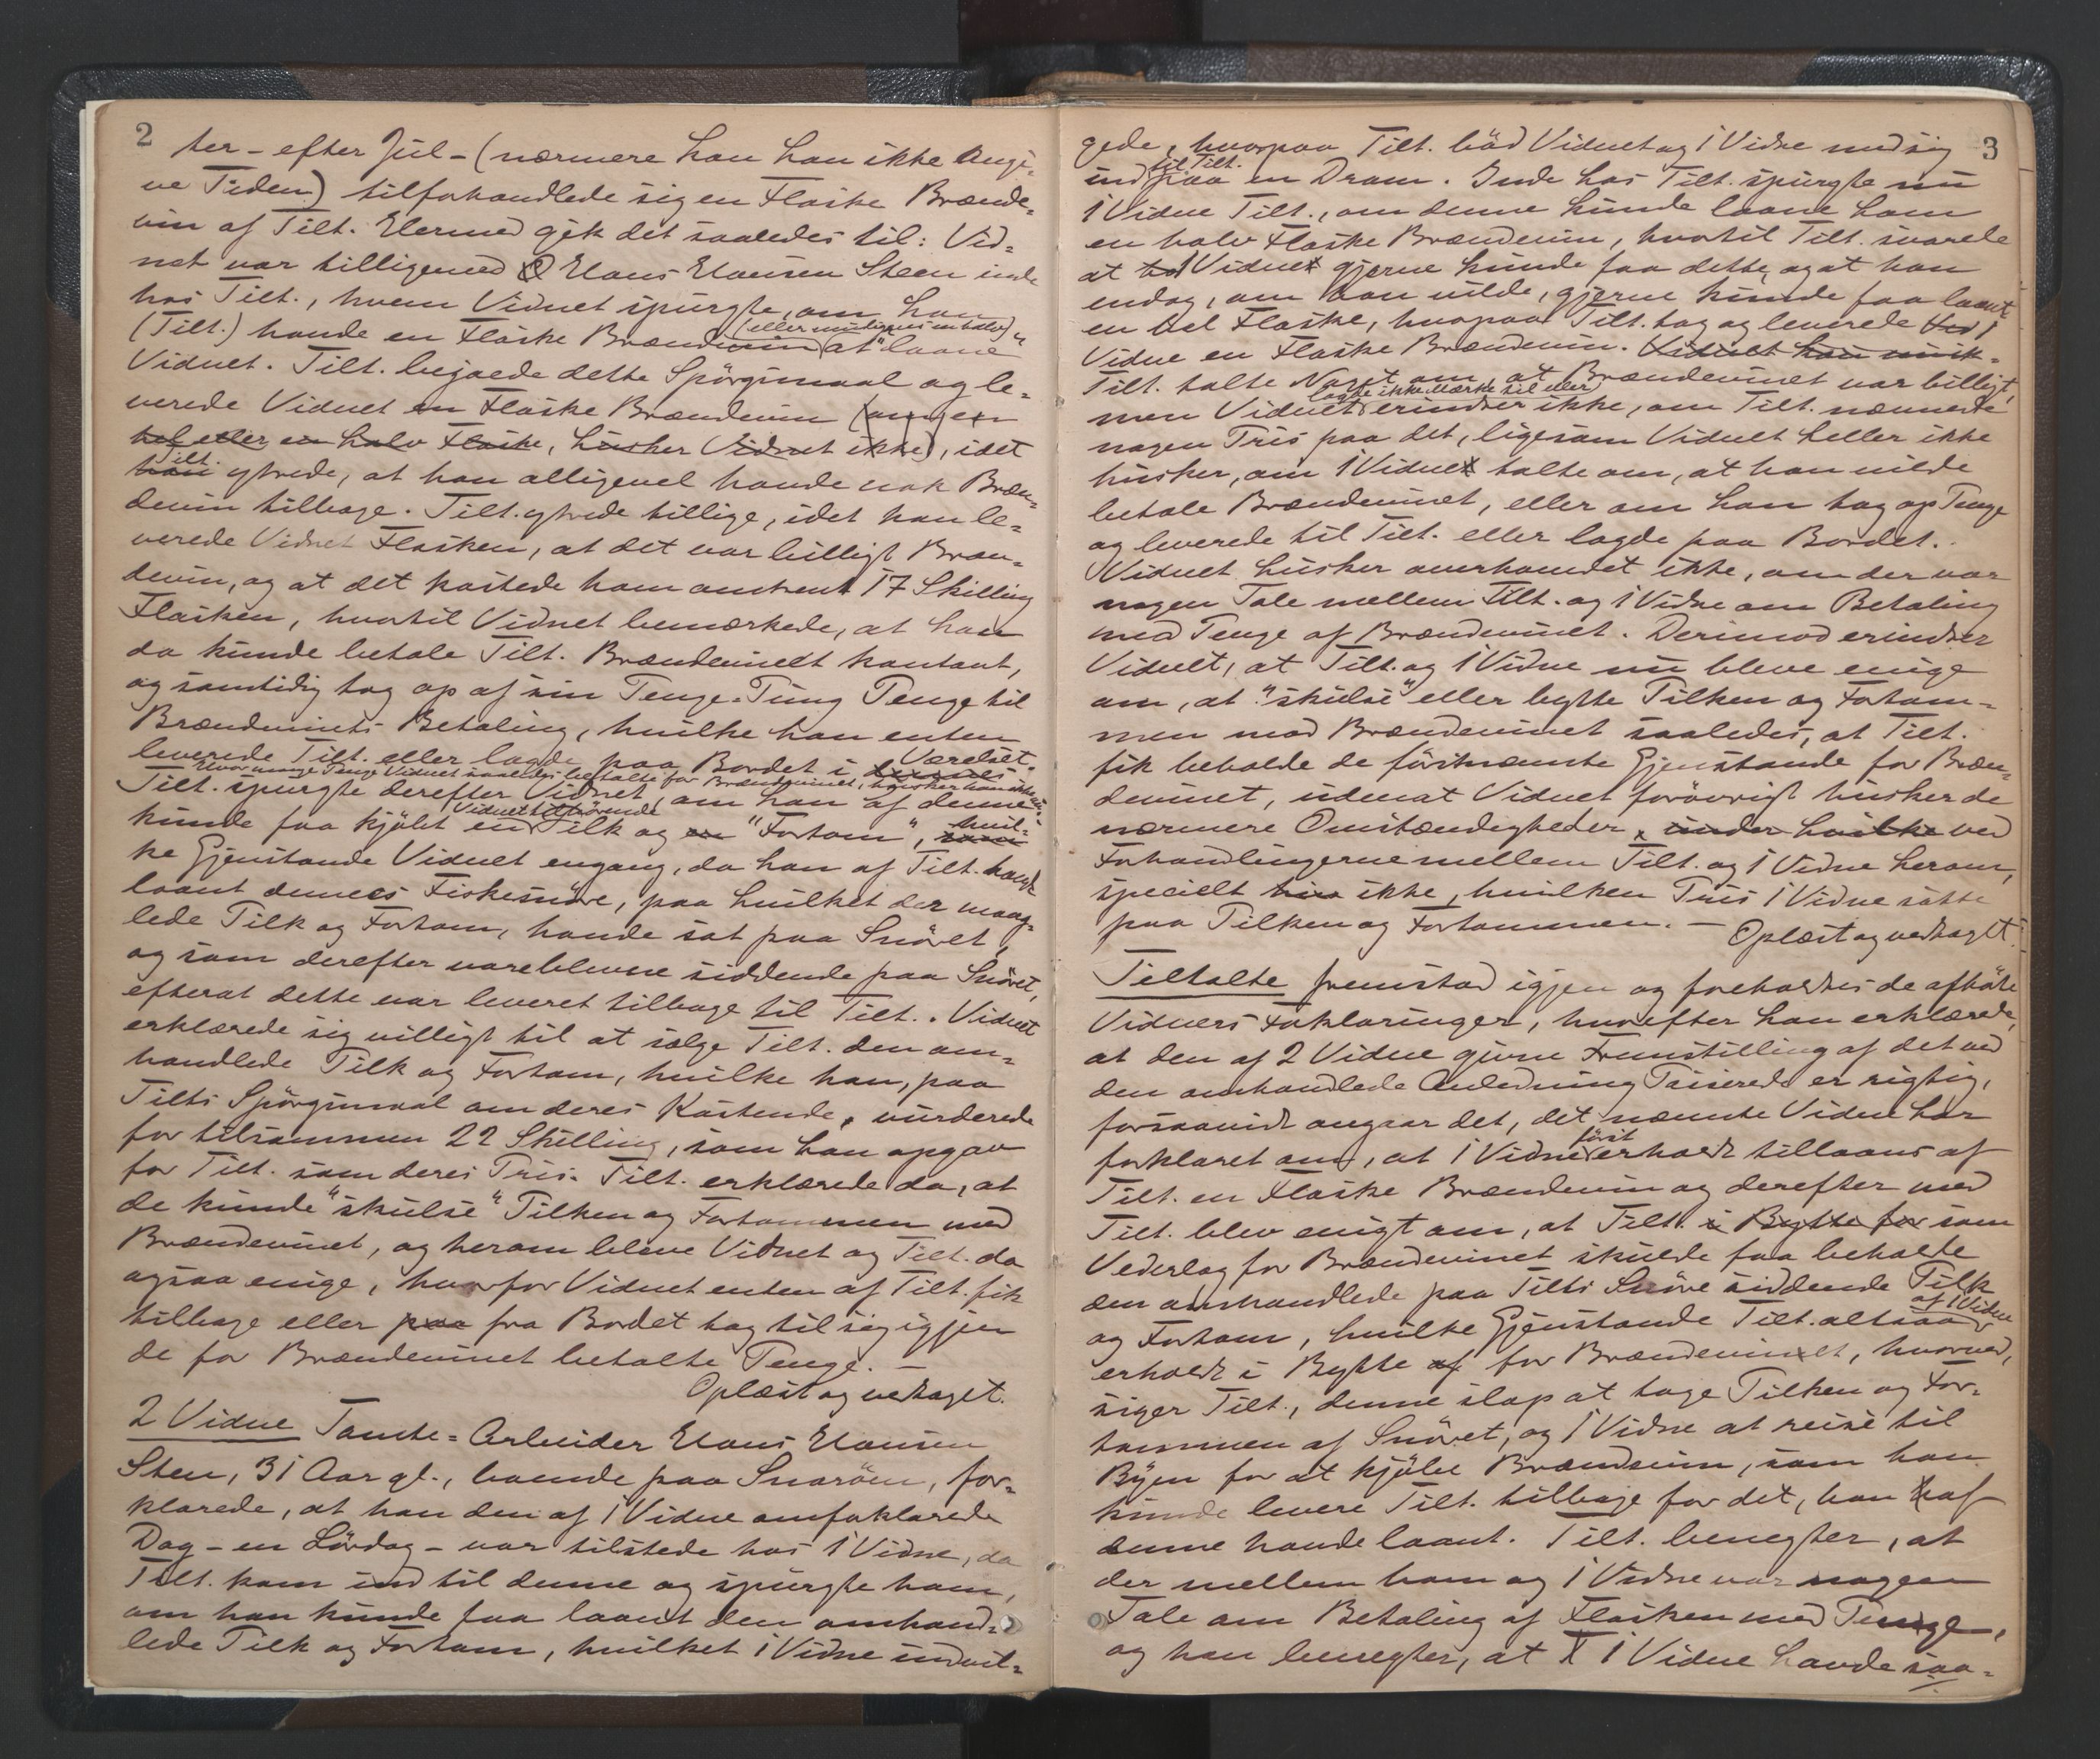 2
ter - efter Jul - (nærmere kan han ikke angi-
ve Tiden) tilforhandlede sig en Flaske Brænde-
vin af Tilt. Hermed gik det saaledes til: Vid-
net var tilligemed Hans Hansen Steen inde
hos Tilt., hvem Vidnet spurgte, om han
(eller muligens en halv)
(Tilt.) havde en Flaske Brændevin at "laane"
Vidnet. Tilt. bejaede dette Spørgsmaal og le-
verede Vidnet en Flaske Brændevin (om en
hel eller en halv Flaske, husker Vidnet ikke), idet
Tilt.
han ytrede, at han alligevel havde nok Bræn-
devin tilbage. Tilt. ytrede tillige, idet han le-
verede Vidnet Flasken, at det var billigt Bræn-
devin, og at det kostede ham omtrent 17 Skilling
Flasken, hvortil Vidnet bemærkede, at han
da kunde betale Tilt. Brændevinet kontant,
og samtidig tog op af sin Penge-Pung Penge til
Brændevinets Betaling, hvilke han enten
leverede Tilt. eller lagde paa Bordet i Værelset.
Hvor mange Penge Vidnet saaledes betalte for Brændevinet, husker han ikke
Tilt. spurgte derefter Vidnet, om han af denne
Vidnet tilhørende
kunde faa kjøbt en Pilk og en "Fortom", hvil-
ke Gjenstande Vidnet engang, da han af Tilt. havde
laant dennes Fiskesnøre, paa hvilket der mang-
lede Pilk og Fortom, havde sat paa Snøret,
og som derefter vare blevne siddende paa Snøret,
efterat dette var leveret tilbage til Tilt. Vidnet
erklærede sig villigt til at sælge Tilt. den om-
handlede Pilk og Fortom, hvilke han, paa
Tilts Spørgsmaal om deres Kostende, vurderede
for tilsammen 22 Skilling, som han opgav
for Tilt. som deres Pris. Tilt. erklærede da, at
de kunde "skulse" Pilken og Fortommen med
Brændevinet, og herom bleve Vidnet og Tilt. da
ogsaa enige, hvorfor Vidnet enten af Tilt. fik
tilbage eller paa fra Bordet tog til sig igjen
de for Brændevinet betalte Penge. -
Oplæst og vedtaget.
2 Vidne Tomte-Arbeider Hans Hansen
Steen, 31 Aar gl., boende paa Snarøen, for-
klarede, at han den af 1 Vidne omforklarede
Dag - en Lørdag - var tilstede hos 1 Vidne, da
Tilt. kom ind til denne og spurgte ham,
om han kunde faa laant den omhand-
lede Pilk og Fortom, hvilket 1 Vidne indvil-
3
gede, hvorpaa Tilt. bød Vidnet og 1 Vidne med sig
til Tilt.
ind paa en Dram. Inde hos Tilt. spurgte nu
1 Vidne Tilt., om denne kunde laane ham
en halv Flaske Brændevin, hvortil Tilt. svarede
at 1 Vidne gjerne kunde faa dette, og at han
endog, om han vilde, gjerne kunde faa laant
en hel Flaske, hvorpaa Tilt. tog og leverede 1
Vidne en Flaske Brændevin. Vidnet kan
Tilt. talte Noget om, at Brændevinet var billigt,
lagde ikke Mærke til eller
men Vidnet erindrer ikke, om Tilt. nævnede
nogen Pris paa det, ligesom Vidnet heller ikke
husker, om 1 Vidne talte om, at han vilde
betale Brændevinet, eller om han tog op Penge
og leverede til Tilt. eller lagde paa Bordet.
Vidnet husker overhovedet ikke, om der var
nogen Tale mellem Tilt. og 1 Vidne om Betaling
med Penge af Brændevinet. Derimod erindrer
Vidnet, at Tilt. og 1 Vidne nu bleve enige
om, at "skulse" eller bytte Pilken og Fortom-
men mod Brændevinet saaledes, at Tilt.
fik beholde de førstnævnte Gjenstande for Bræn-
devinet, udenat Vidnet forøvrigt husker de
nærmere Omstændigheder, under hvilke ved
Forhandlingerne mellem Tilt. og 1 Vidne herom,
specielt ikke, hvilken Pris 1 Vidne satte
paa Pilken og Fortommen. - Oplæst og vedtaget.
Tiltalte fremstod igjen og foreholdtes de afhørte
Vidners Forklaringer, hvorefter han erklærede,
at den af 2 Vidne givne Fremstilling af det ved
den omhandlede Anledning Passerede er rigtig,
forsaavidt angaar det, det nævnte Vidne har
først
forklaret om, at 1 Vidne erholdt tillaans af
Tilt. en Flaske Brændevin og derefter med
Tilt. blev enigt om, at Tilt. i Bytte for som
Vederlag for Brændevinet skulde faa beholde
den omhandlede paa Tilts Snøre siddende Pilk
af 1 Vidne
og Fortom, hvilke Gjenstande Tilt. altsaa
erholdt i Bytte af for Brændevinet, hvorved,
siger Tilt., denne slap at tage Pilken og For-
tommen af Snøret, og 1 Vidne at reise til
Byen for at kjøbe Brændevin, som han
kunde levere Tilt. tilbage for det, han af
denne havde laant. Tilt. benegter, at
der mellem ham og 1 Vidne var nogen
Tale om Betaling af Flasken med Penge,
og han benegter, at 1 Vidne havde saa-